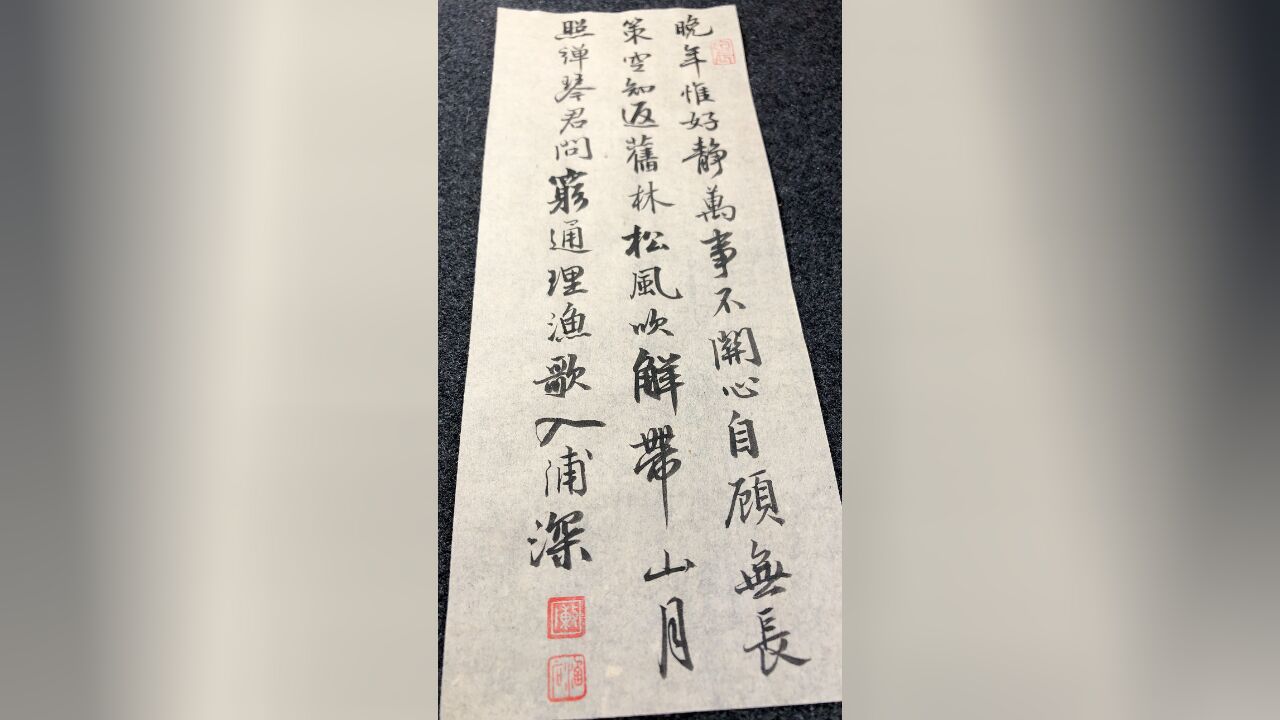 晚年惟好静萬事不關心自顧無長
策空知返舊林松風吹解帶山月
照彈琴君問窮通理漁歌入浦深